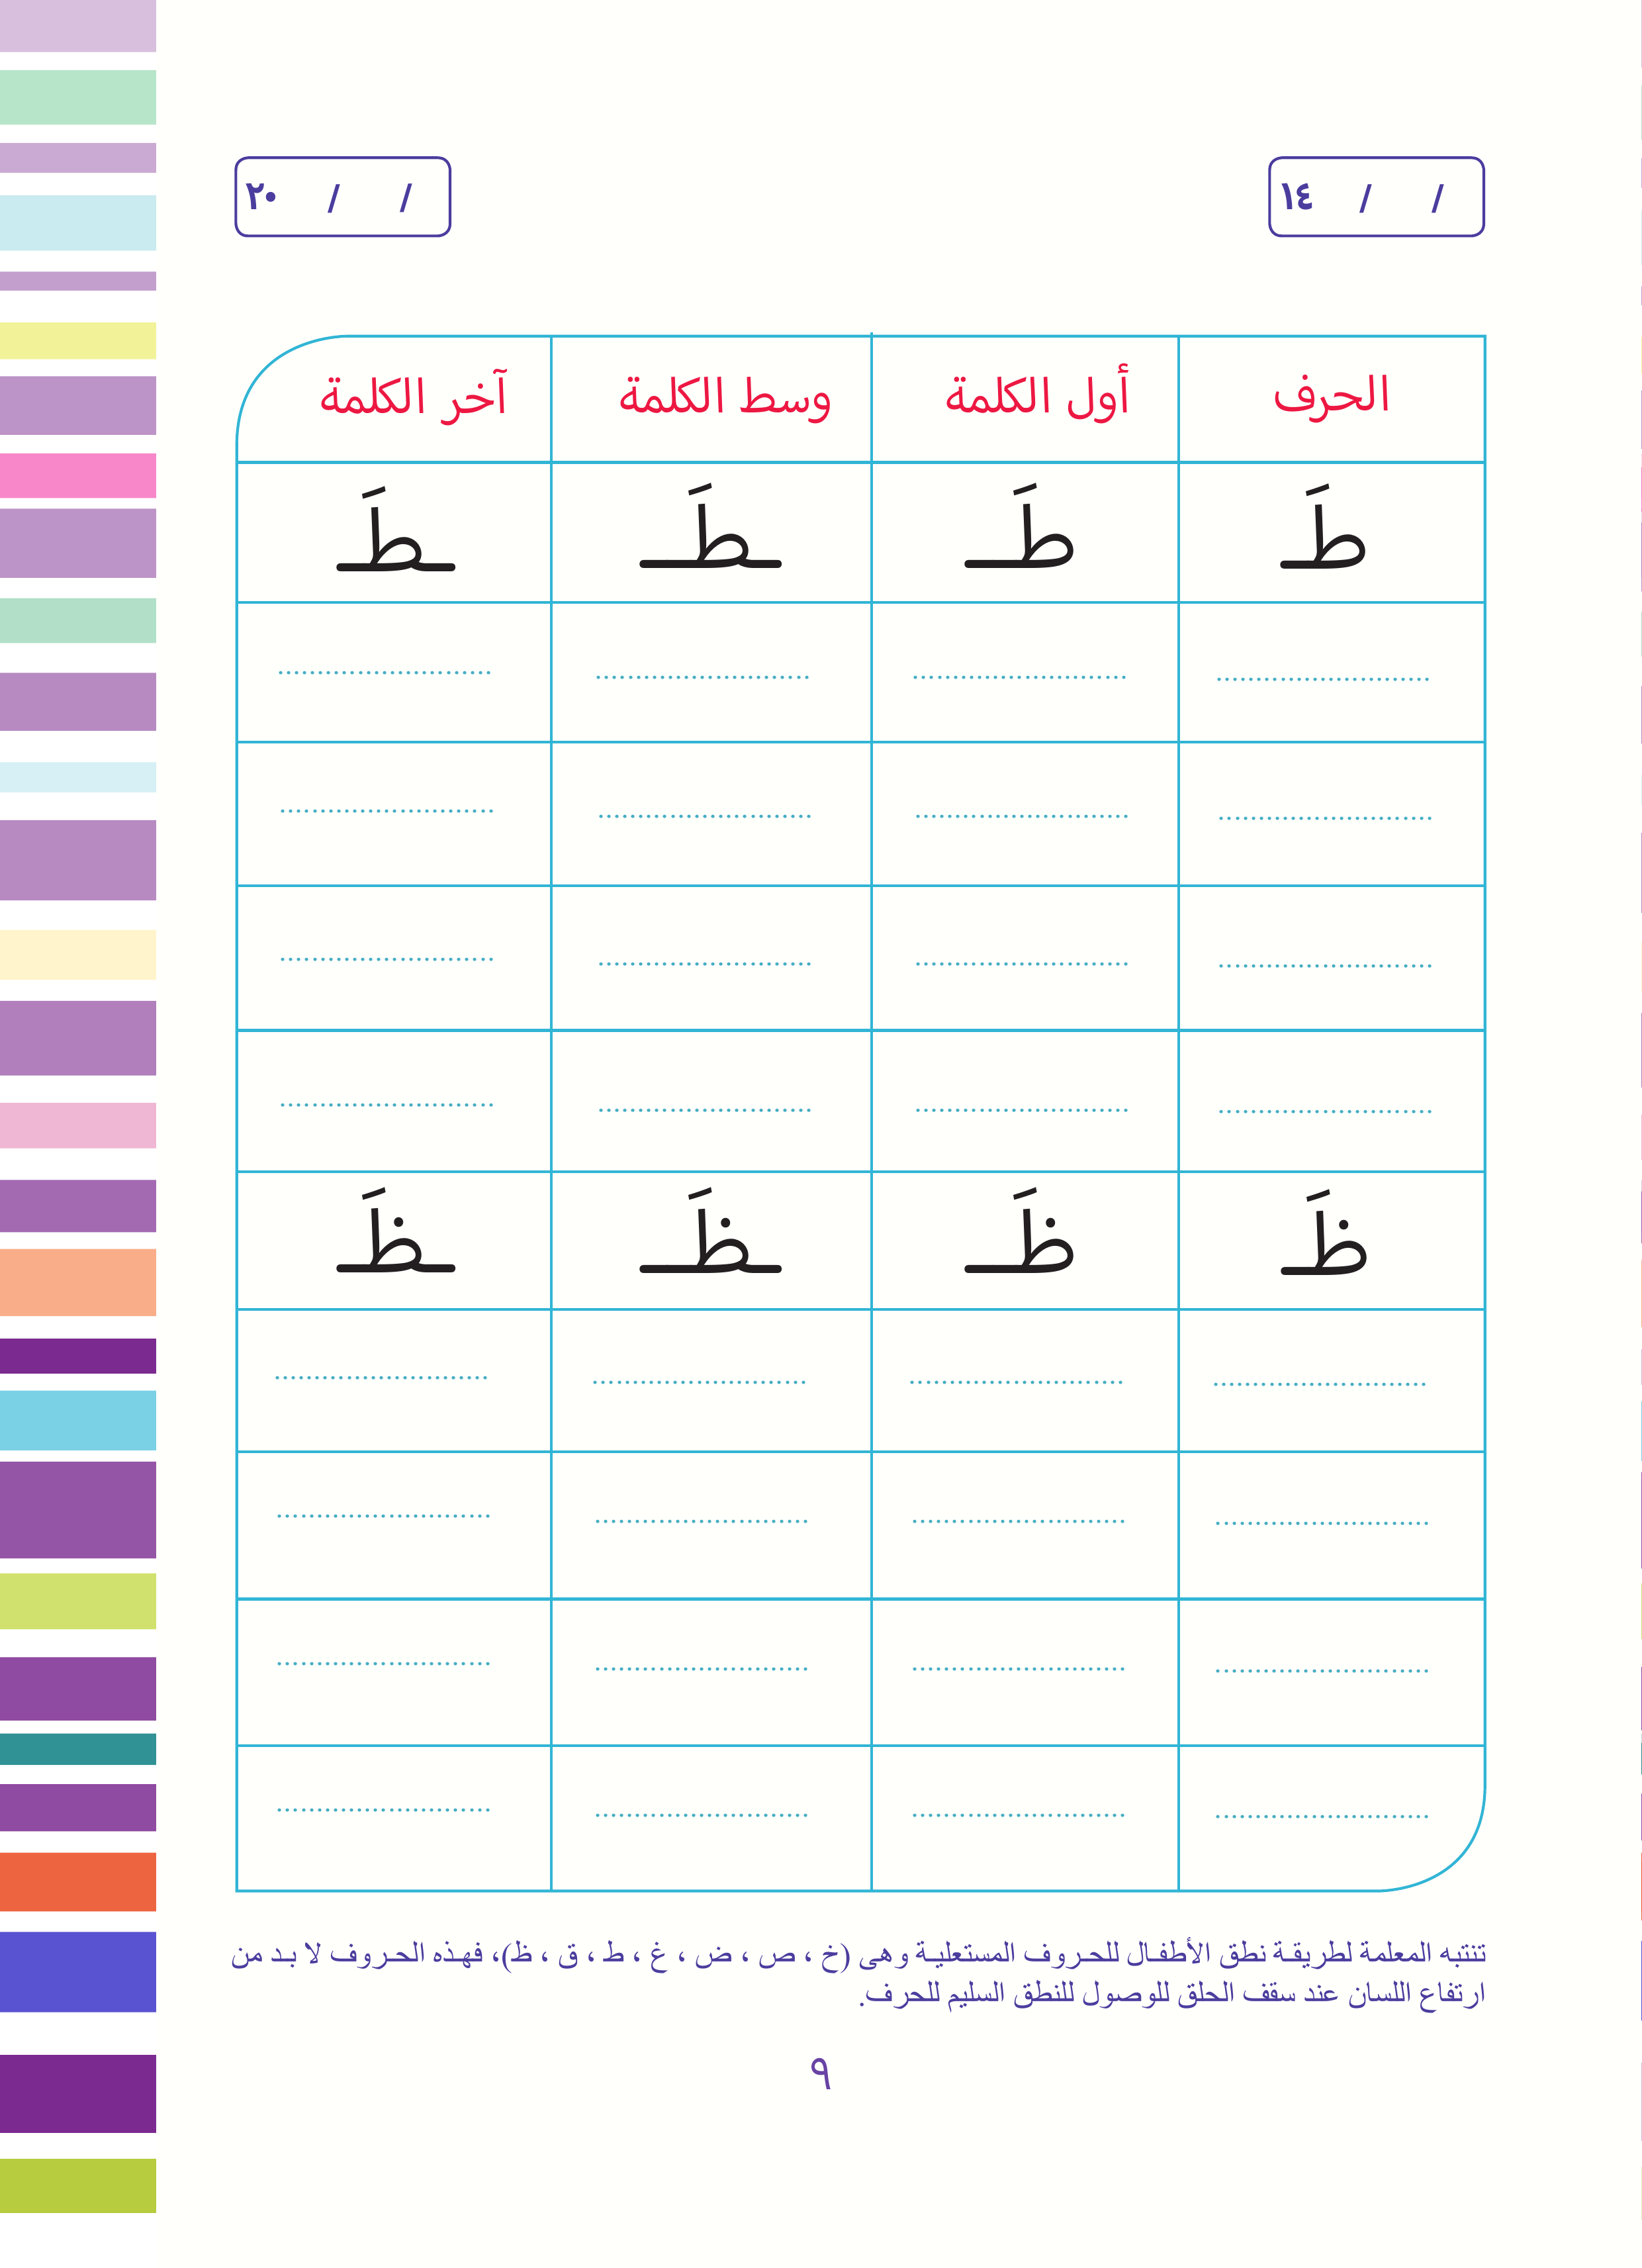 ١٤ / /
٢٠ / /
الحرف أول الكلمة وسط الكلمة آخر الكلمة
طَ طَـ ـطَـ ـطَ
........................... ........................... ........................... ...........................
........................... ........................... ........................... ...........................
........................... ........................... ........................... ...........................
........................... ........................... ........................... ...........................
ظَ ظَـ ـظَـ ـظَ
........................... ........................... ........................... ...........................
........................... ........................... ........................... ...........................
........................... ........................... ........................... ...........................
........................... ........................... ........................... ...........................
تنتبه المعلمة لطريقـة نطق الأطفـال للحـروف المستعليـة وهى (خ ، ص ، ض ، غ ، ط ، ق ، ظ)، فهـذه الحـروف لا بـد من
ارتفاع اللسان عند سقف الحلق للوصول للنطق السليم للحرف.
٩